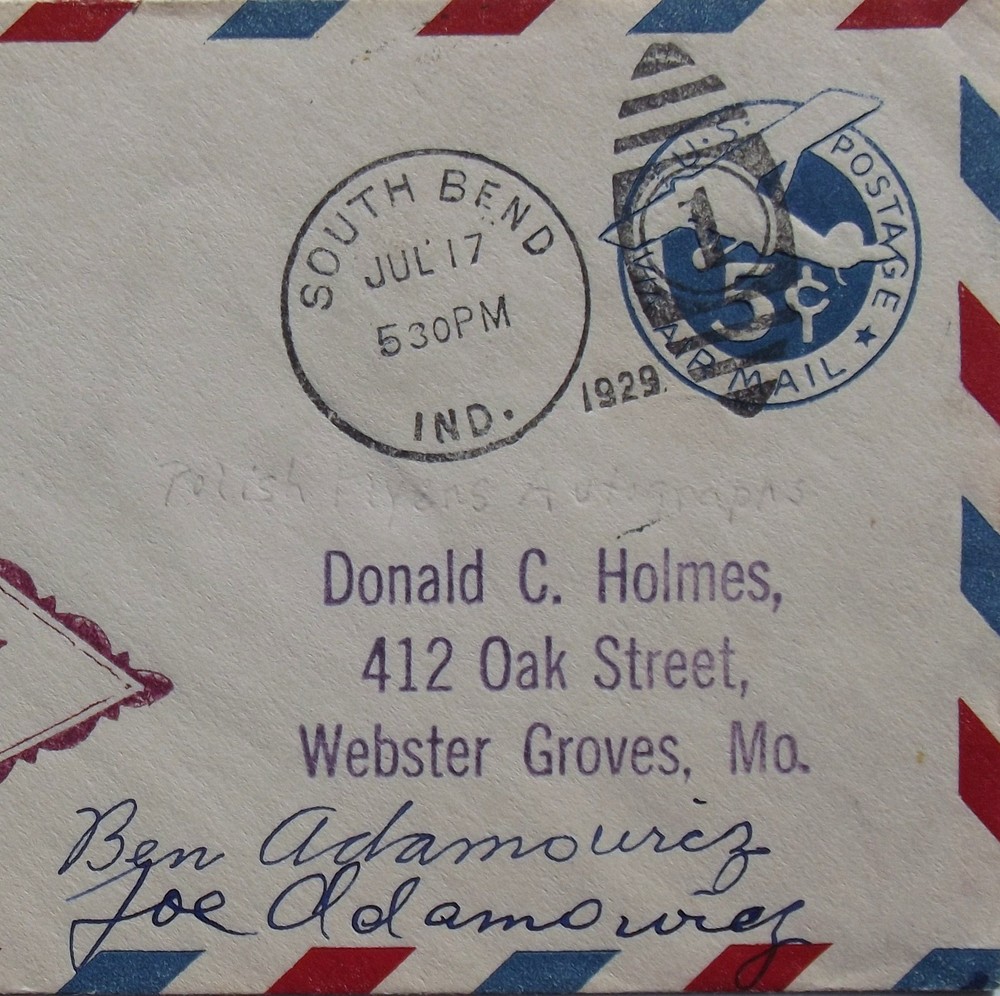 SOUTH BEND
JUL 17
530PM
IND.
1929.
1
U.S. POSTAGE
5¢
VIA AIR MAIL
Polish Flyers Autographs
Donald C. Holmes,
412 Oak Street,
Webster Groves, Mo.
Ben Adamowicz
Joe Adamowicz